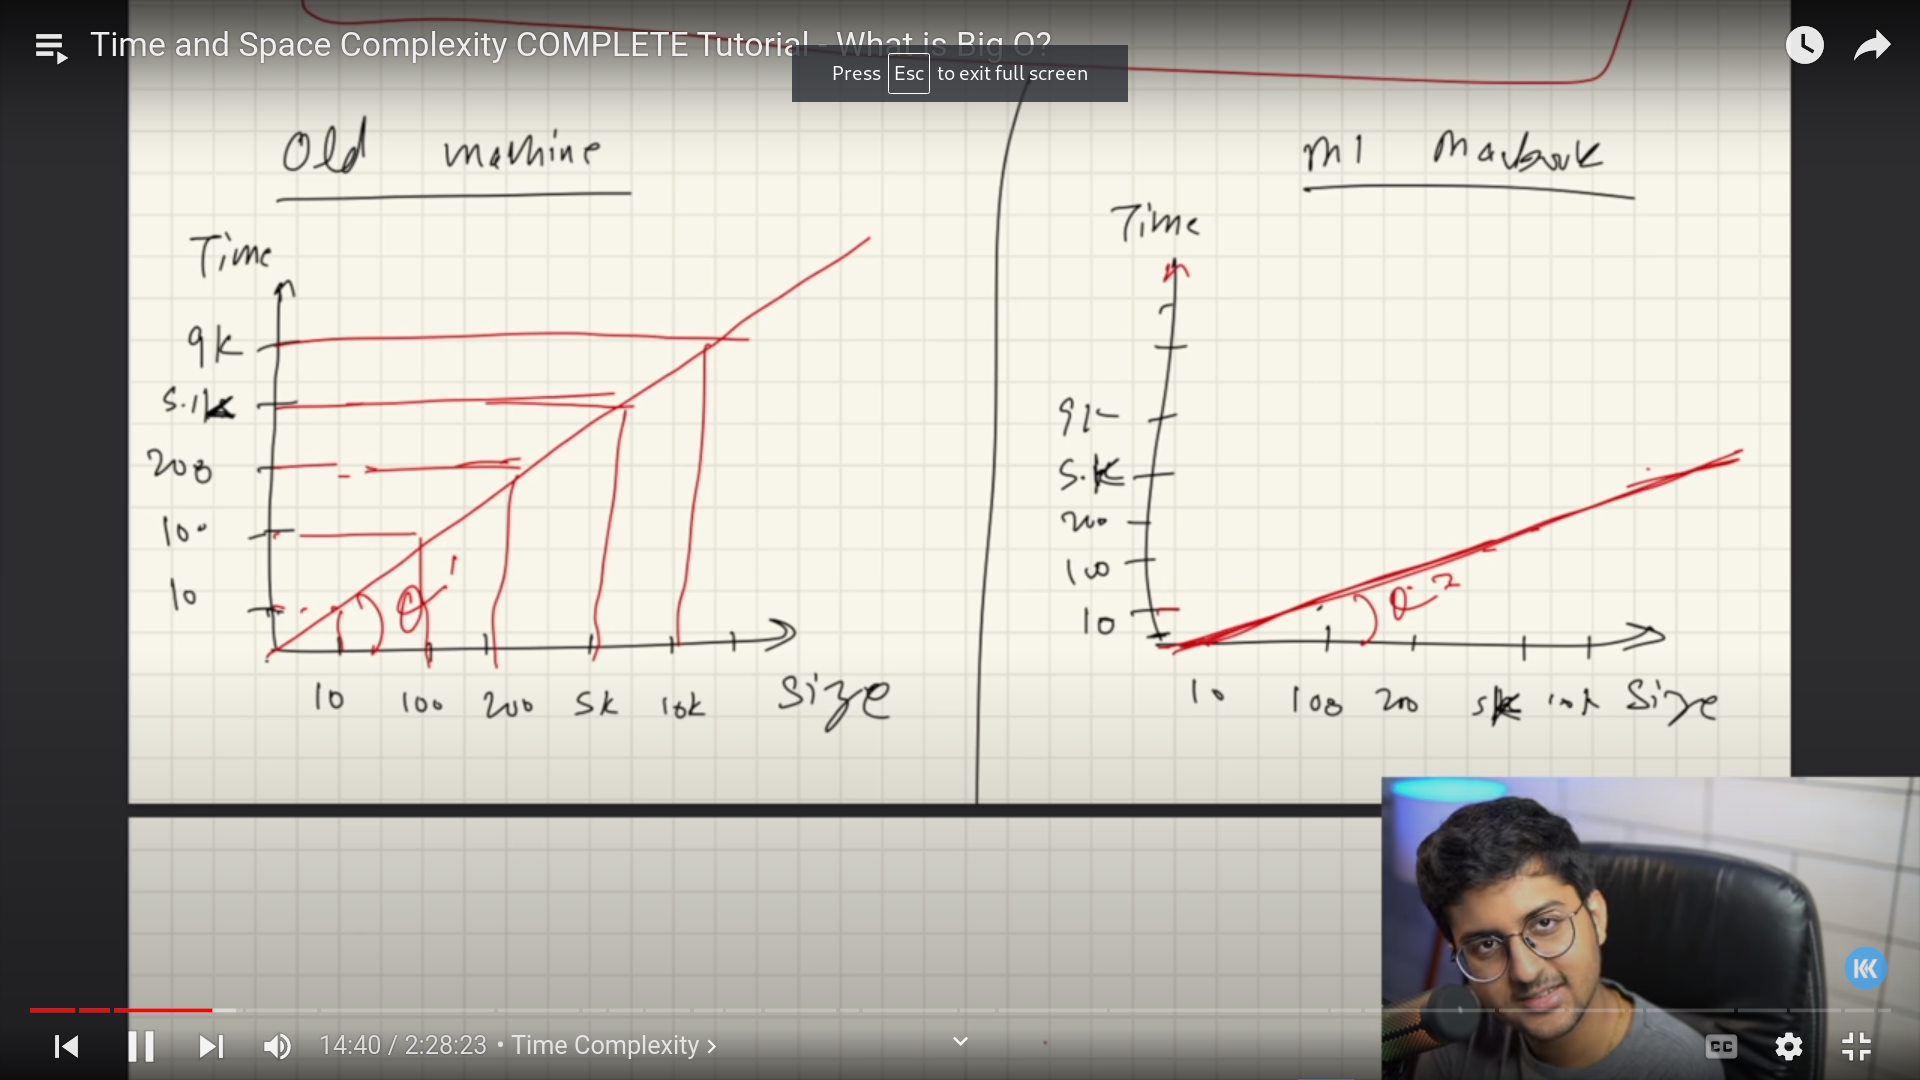 Time and Space Complexity COMPLETE Tutorial - What is Big O?
Press Esc to exit full screen
Old machine
Time
9k
5.1k
200
100
10
θ 1
10 100 200 5k 10k Size
M1 Macbook
Time
9k
5.k
200
100
10
θ 2
10 100 200 5k 10k Size
14:40 / 2:28:23 • Time Complexity
CC